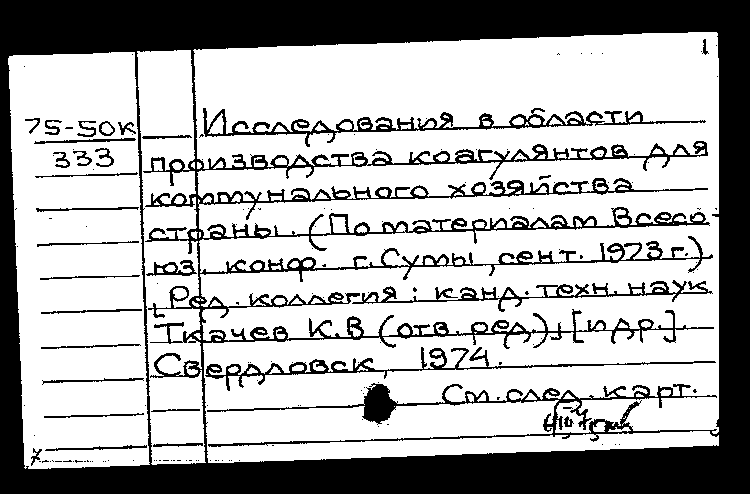 1
75-50к Исследования в области
333 производства коагулянтов для
коммунального хозяйства
страны. (По материалам Всесо-
юз. конф. г. Сумы, сент. 1973 г.).
[Ред. коллегия: канд. техн. наук
Ткачев К.В (отв. ред.)] [и др.].
Свердловск, 1974.
См. след. карт.